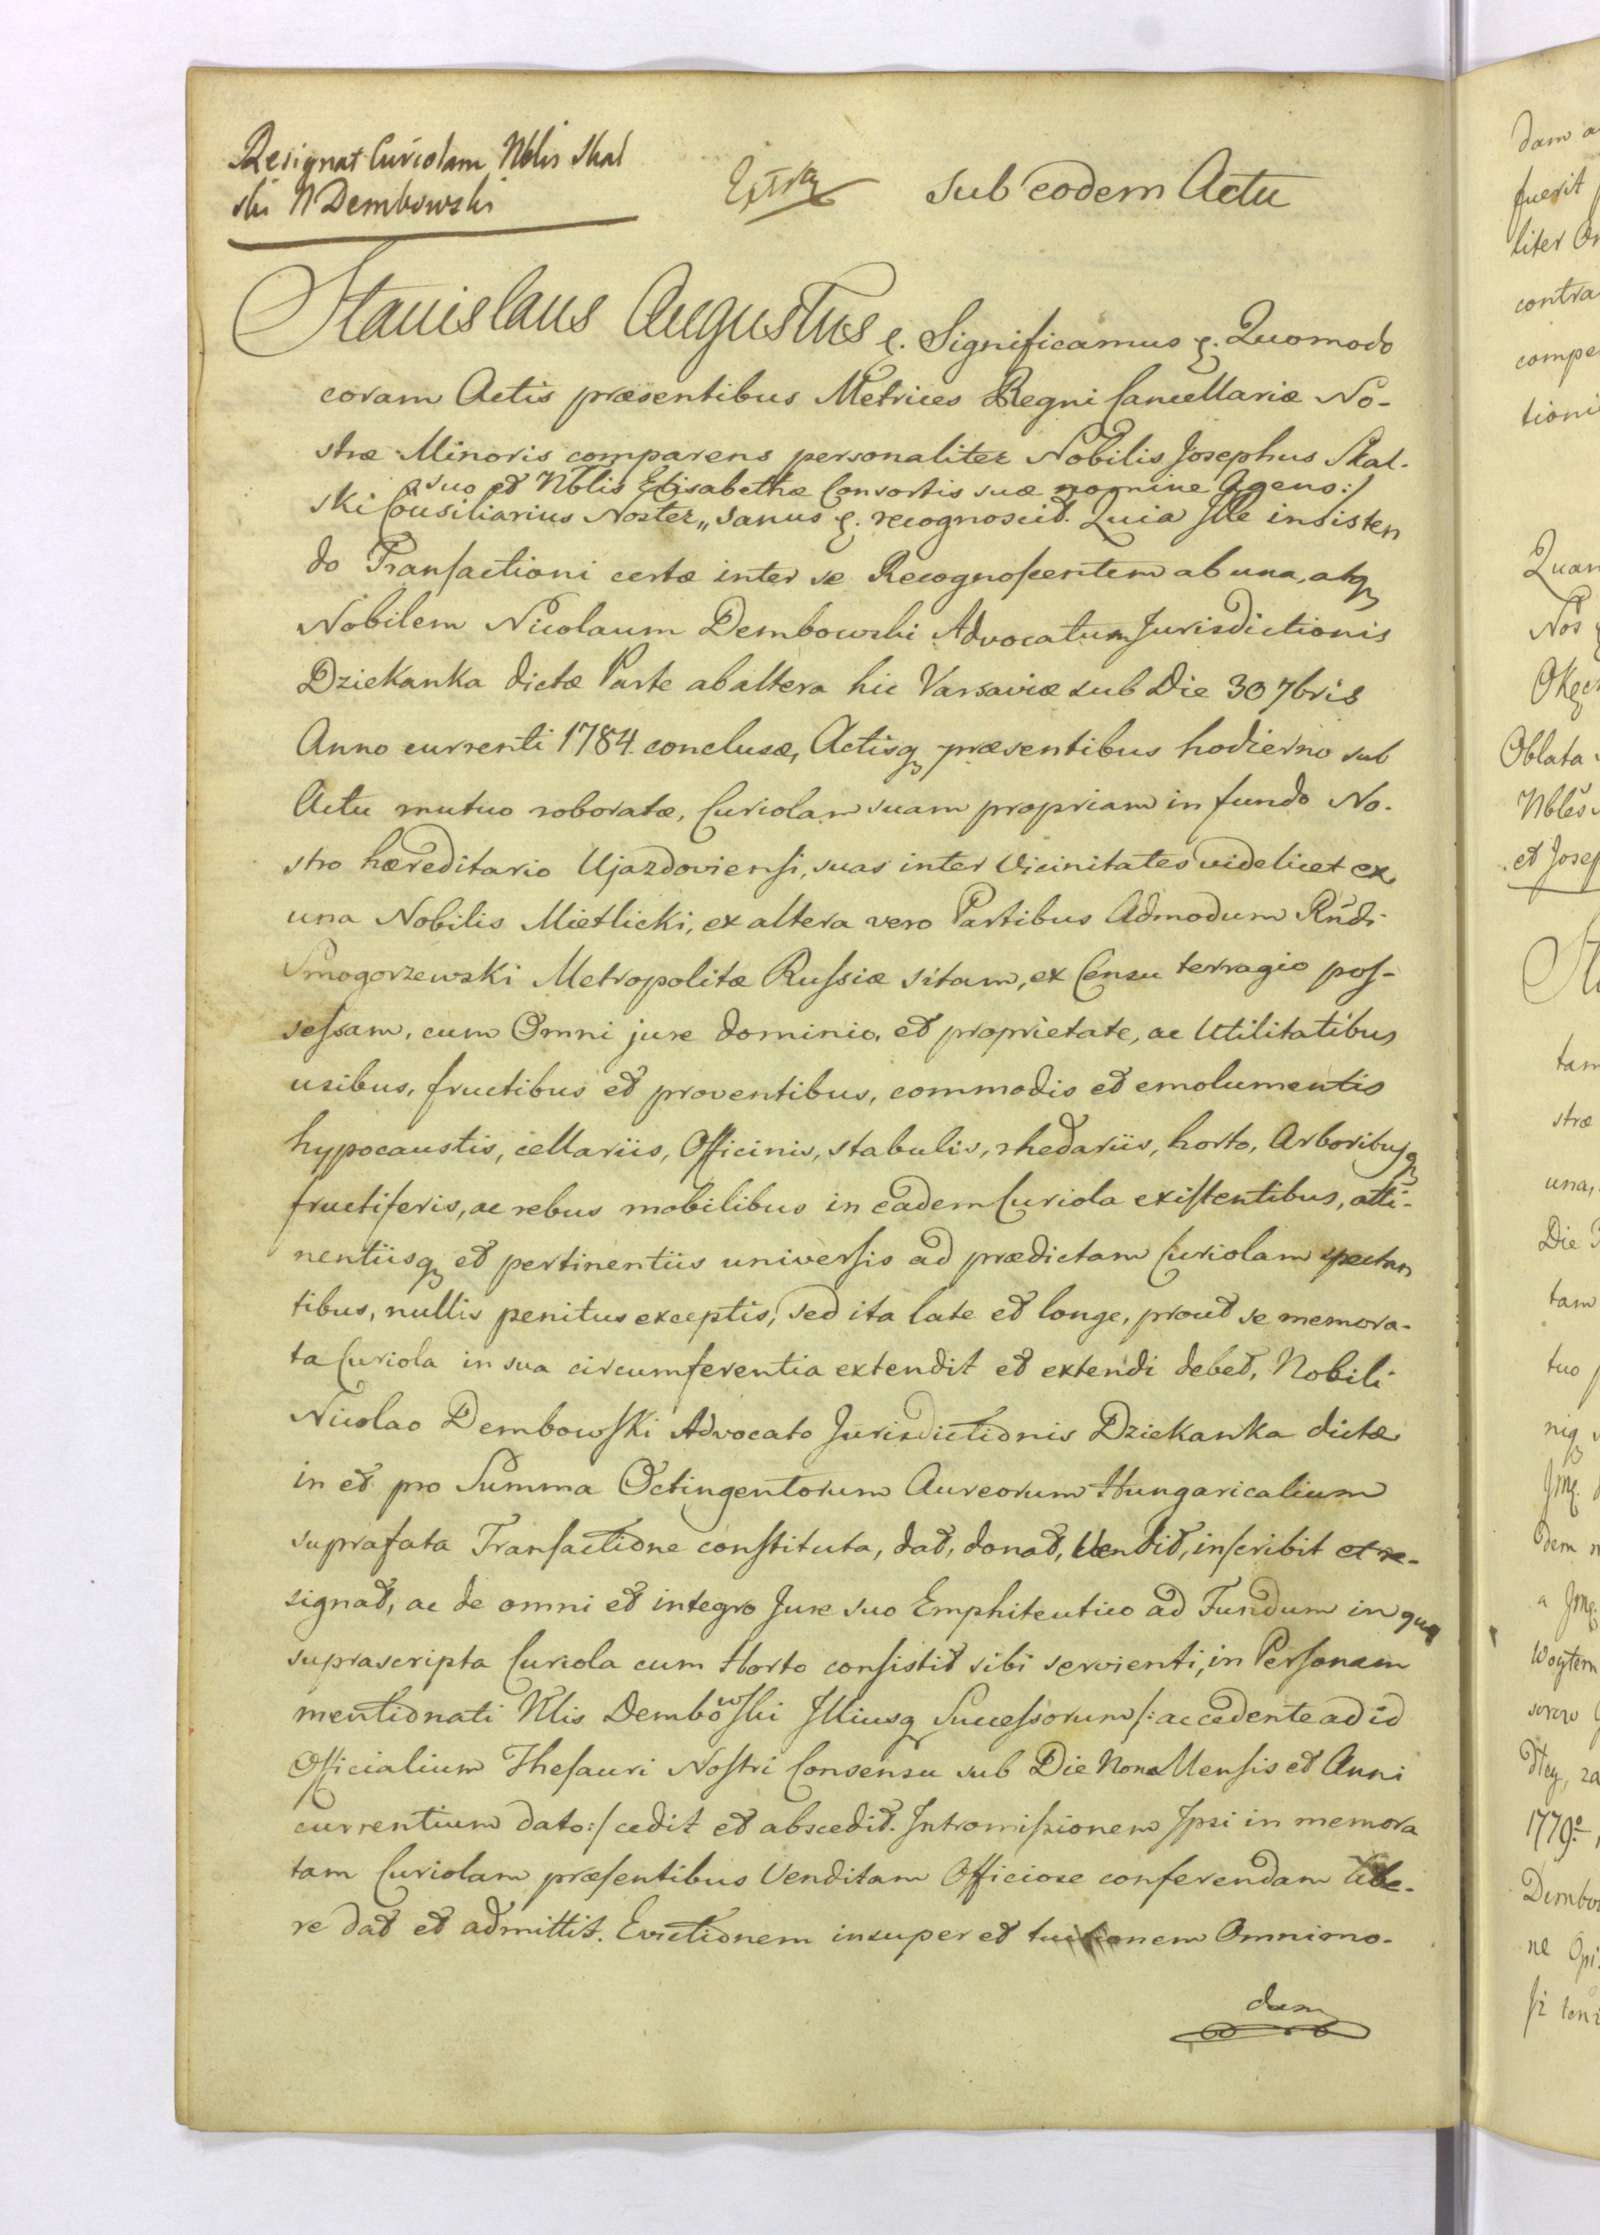 Resignat Curiolam Nblis Skal
ski N Dembowski
Extra
sub eodem Actu
Stanislaus Augustus &. Significamus &. Quomodo
coram Actis præsentibus Metrices Regni Cancellariæ No-
stræ Minoris comparens personaliter Nobilis Josephus Skal-
suo et Nblis Elisabethæ Consortis suæ nomine Agens:/
ski Consiliarius Noster,, sanus &. recognoscit. Quia Ille insisten
do Transactioni certæ inter se Recognoscentem ab una, atq
Nobilem Nicolaum Dembowski Advocatum Jurisdictionis
Dziekanka dictæ Parte ab altera hic Varsaviæ sub Die 30 7bris
Anno currenti 1784 conclusæ, Actisq præsentibus hodierno sub
Actu mutuo roboratæ, Curiolam suam propriam in fundo No-
stro hæreditario Ujazdoviensi, suas inter Vicinitates videlicet ex
una Nobilis Mietlicki, ex altera vero Partibus Admodum Rndi
Smogorzewski Metropolitæ Russiæ sitam, ex Censu terragio pos-
sessam, cum Omni jure dominio, et proprietate, ac Utilitatibus
usibus, fructibus et proventibus, commodis et emolumentis
hypocaustis, cellariis, Officinis, stabulis, rhedariis, horto, Arboribusq
fructiferis, ac rebus mobilibus in eadem Curiola existentibus, atti-
nentiisq et pertinentiis universis ad prædictam Curiolam spectan
tibus, nullis penitus exceptis, sed ita late et longe, prout se memora-
ta Curiola in sua circumferentia extendit et extendi debet, Nobili
Nicolao Dembowski Advocato Jurisdictionis Dziekanka dictæ
in et pro Summa Octingentorum Aureorum Hungaricalium
suprafata Transactione constituta, dat, donat, Vendit, inscribit et re-
signat, ac de omni et integro Jure suo Emphiteutico ad Fundum in quo
suprascripta Curiola cum Horto consistit sibi servienti, in Personam
mentionati Nlis Dembowski Illiusq Successorum /: accedente ad id
Officialium Thesauri Nostri Consensu sub Die Nona Mensis et Anni
currentium dato:/ cedit et abscedit. Intromissionem Ipsi in memora
tam Curiolam præsentibus Venditam Officiose conferendam libe-
re dat et admittit. Evictionem insuper et tuitionem Omnimo-
dam
dam
fuerit
liter
contra
tioni
Quam
Nos
Oblata
et
tam
stræ
una,
Die
tam
tuo
niq
dem
a
1779º
ne